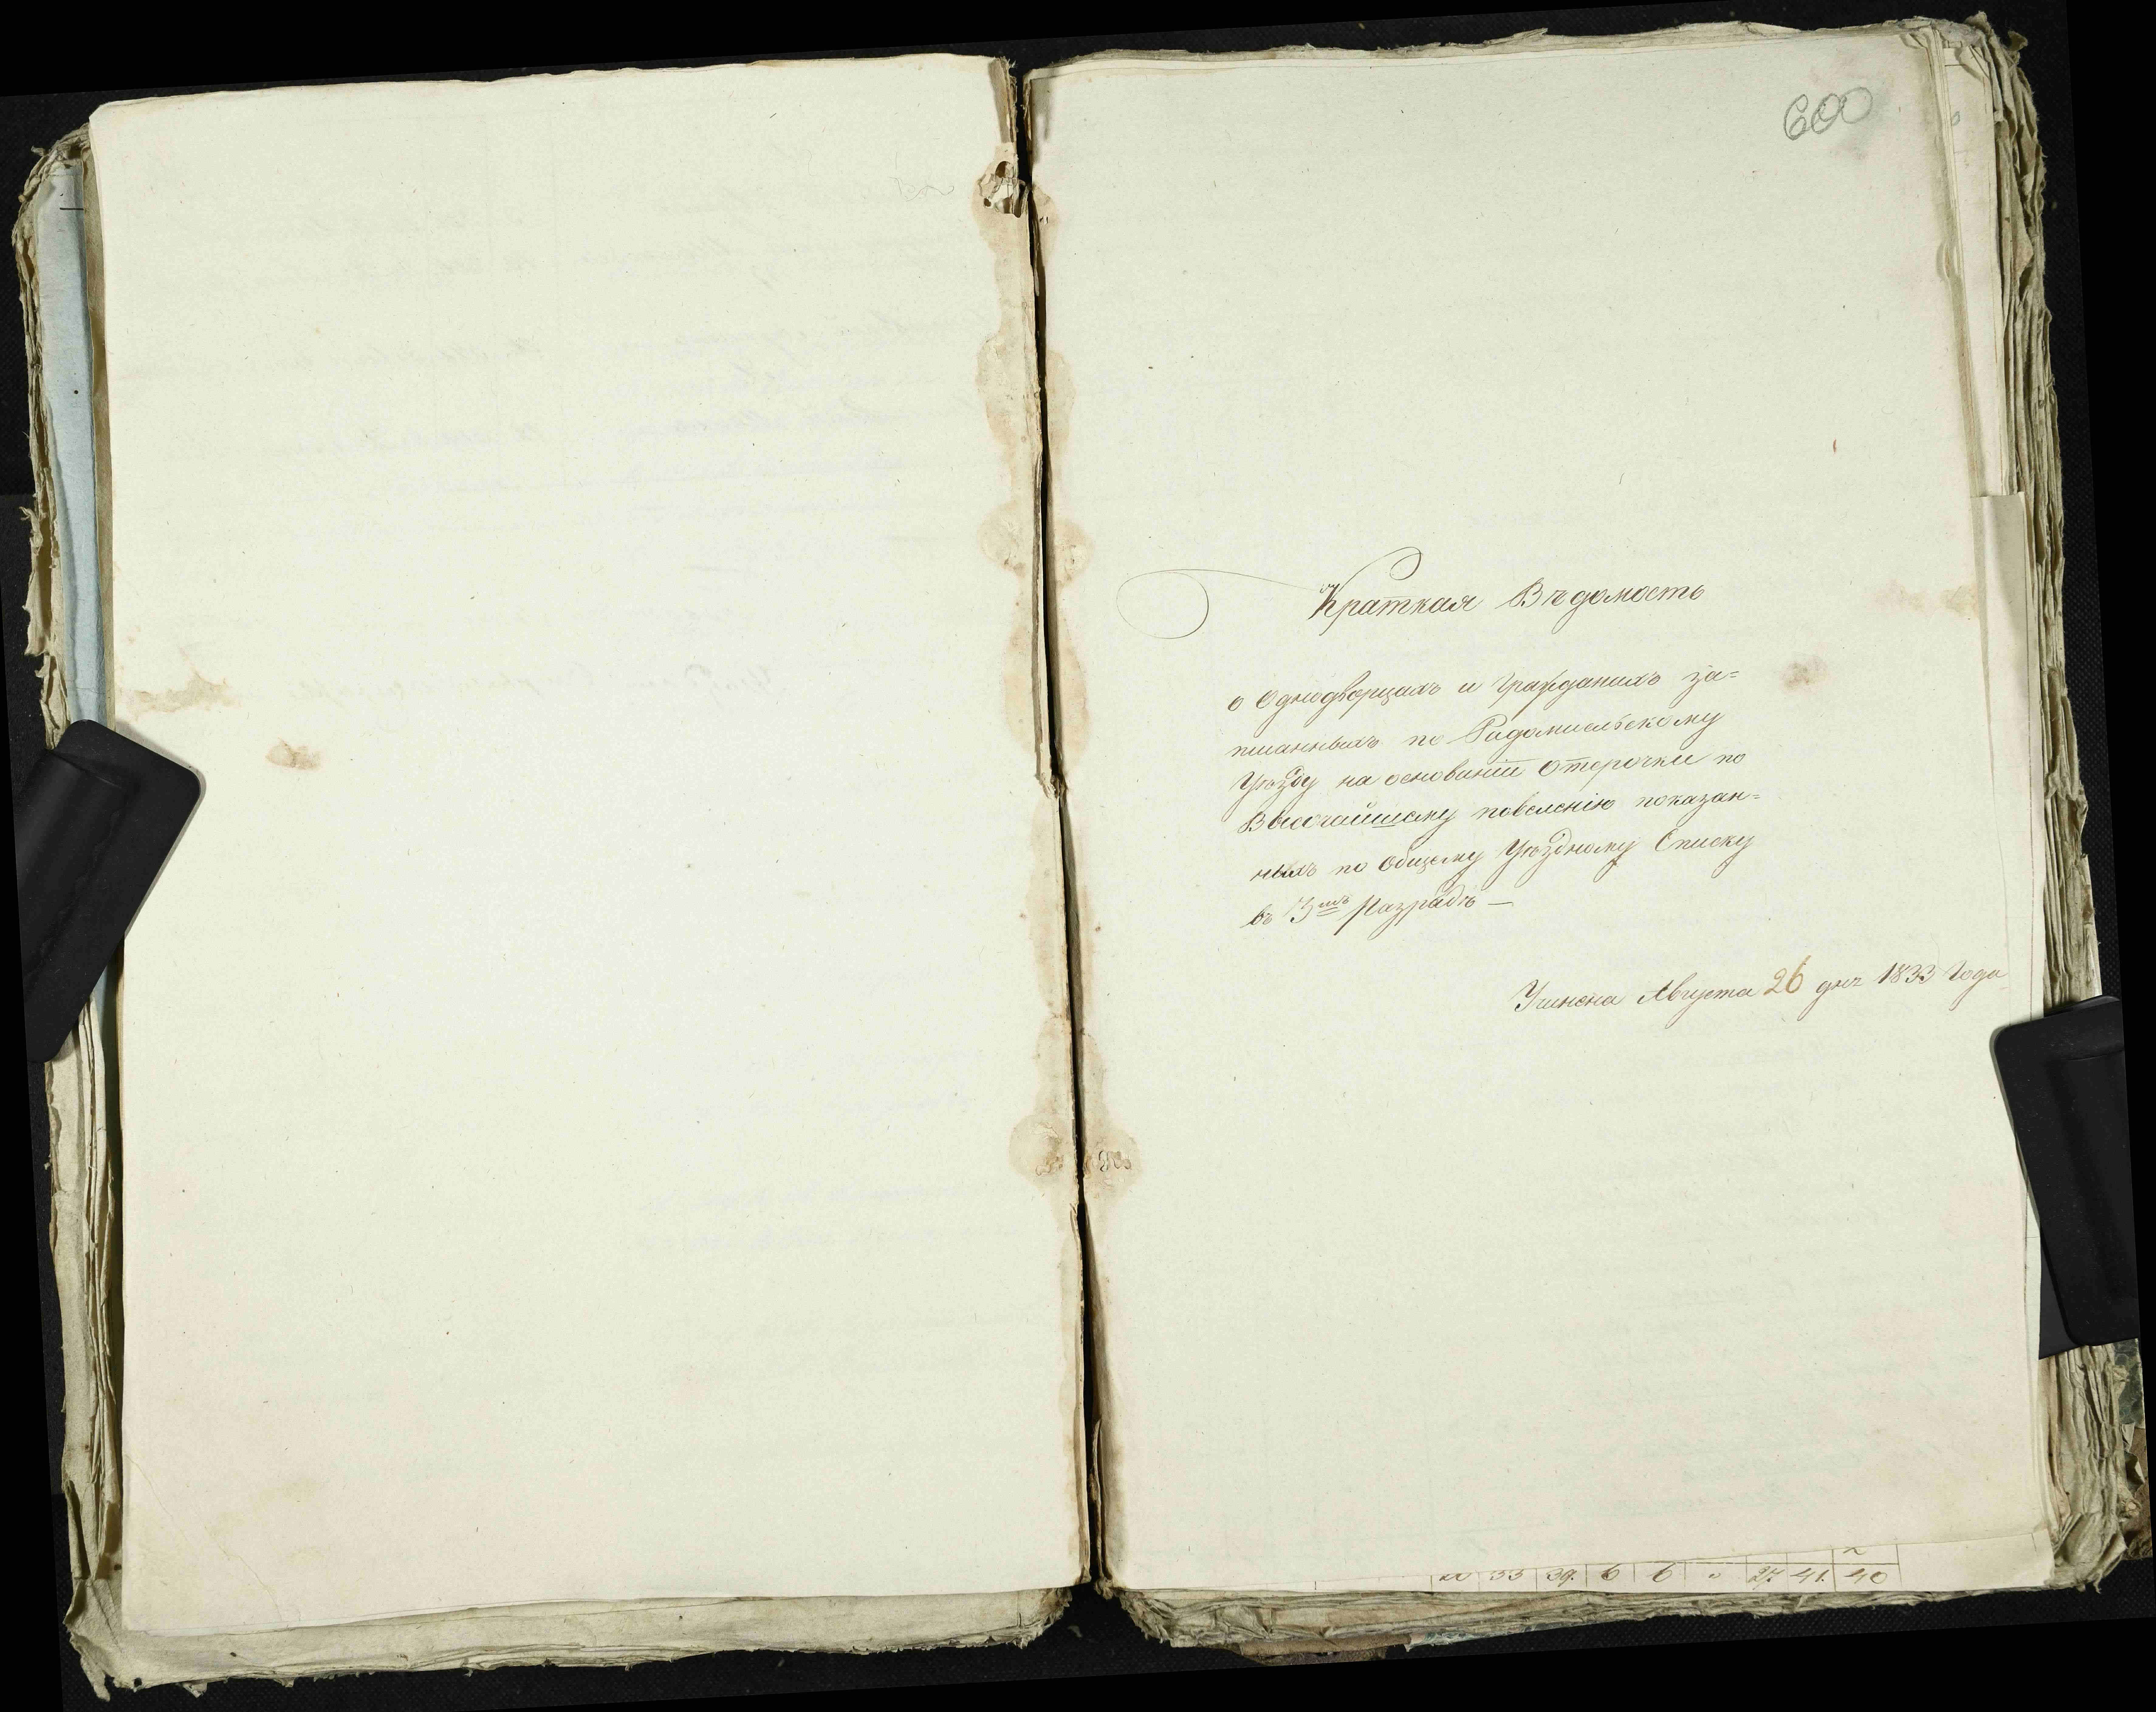 600
Краткая Вѣдомость
о Однодворцахъ и Гражданахъ за=
писанныхъ по Радомысльскому
Уѣзду на основаніи отсрочки по
Высочайшему повеленію показан=
ныхъ по Общему Уѣздному Списку
въ 3мъ Разрядѣ —
Учинена Августа 26 дня 1833 Года
33 39. 6 6 27. 41. 40